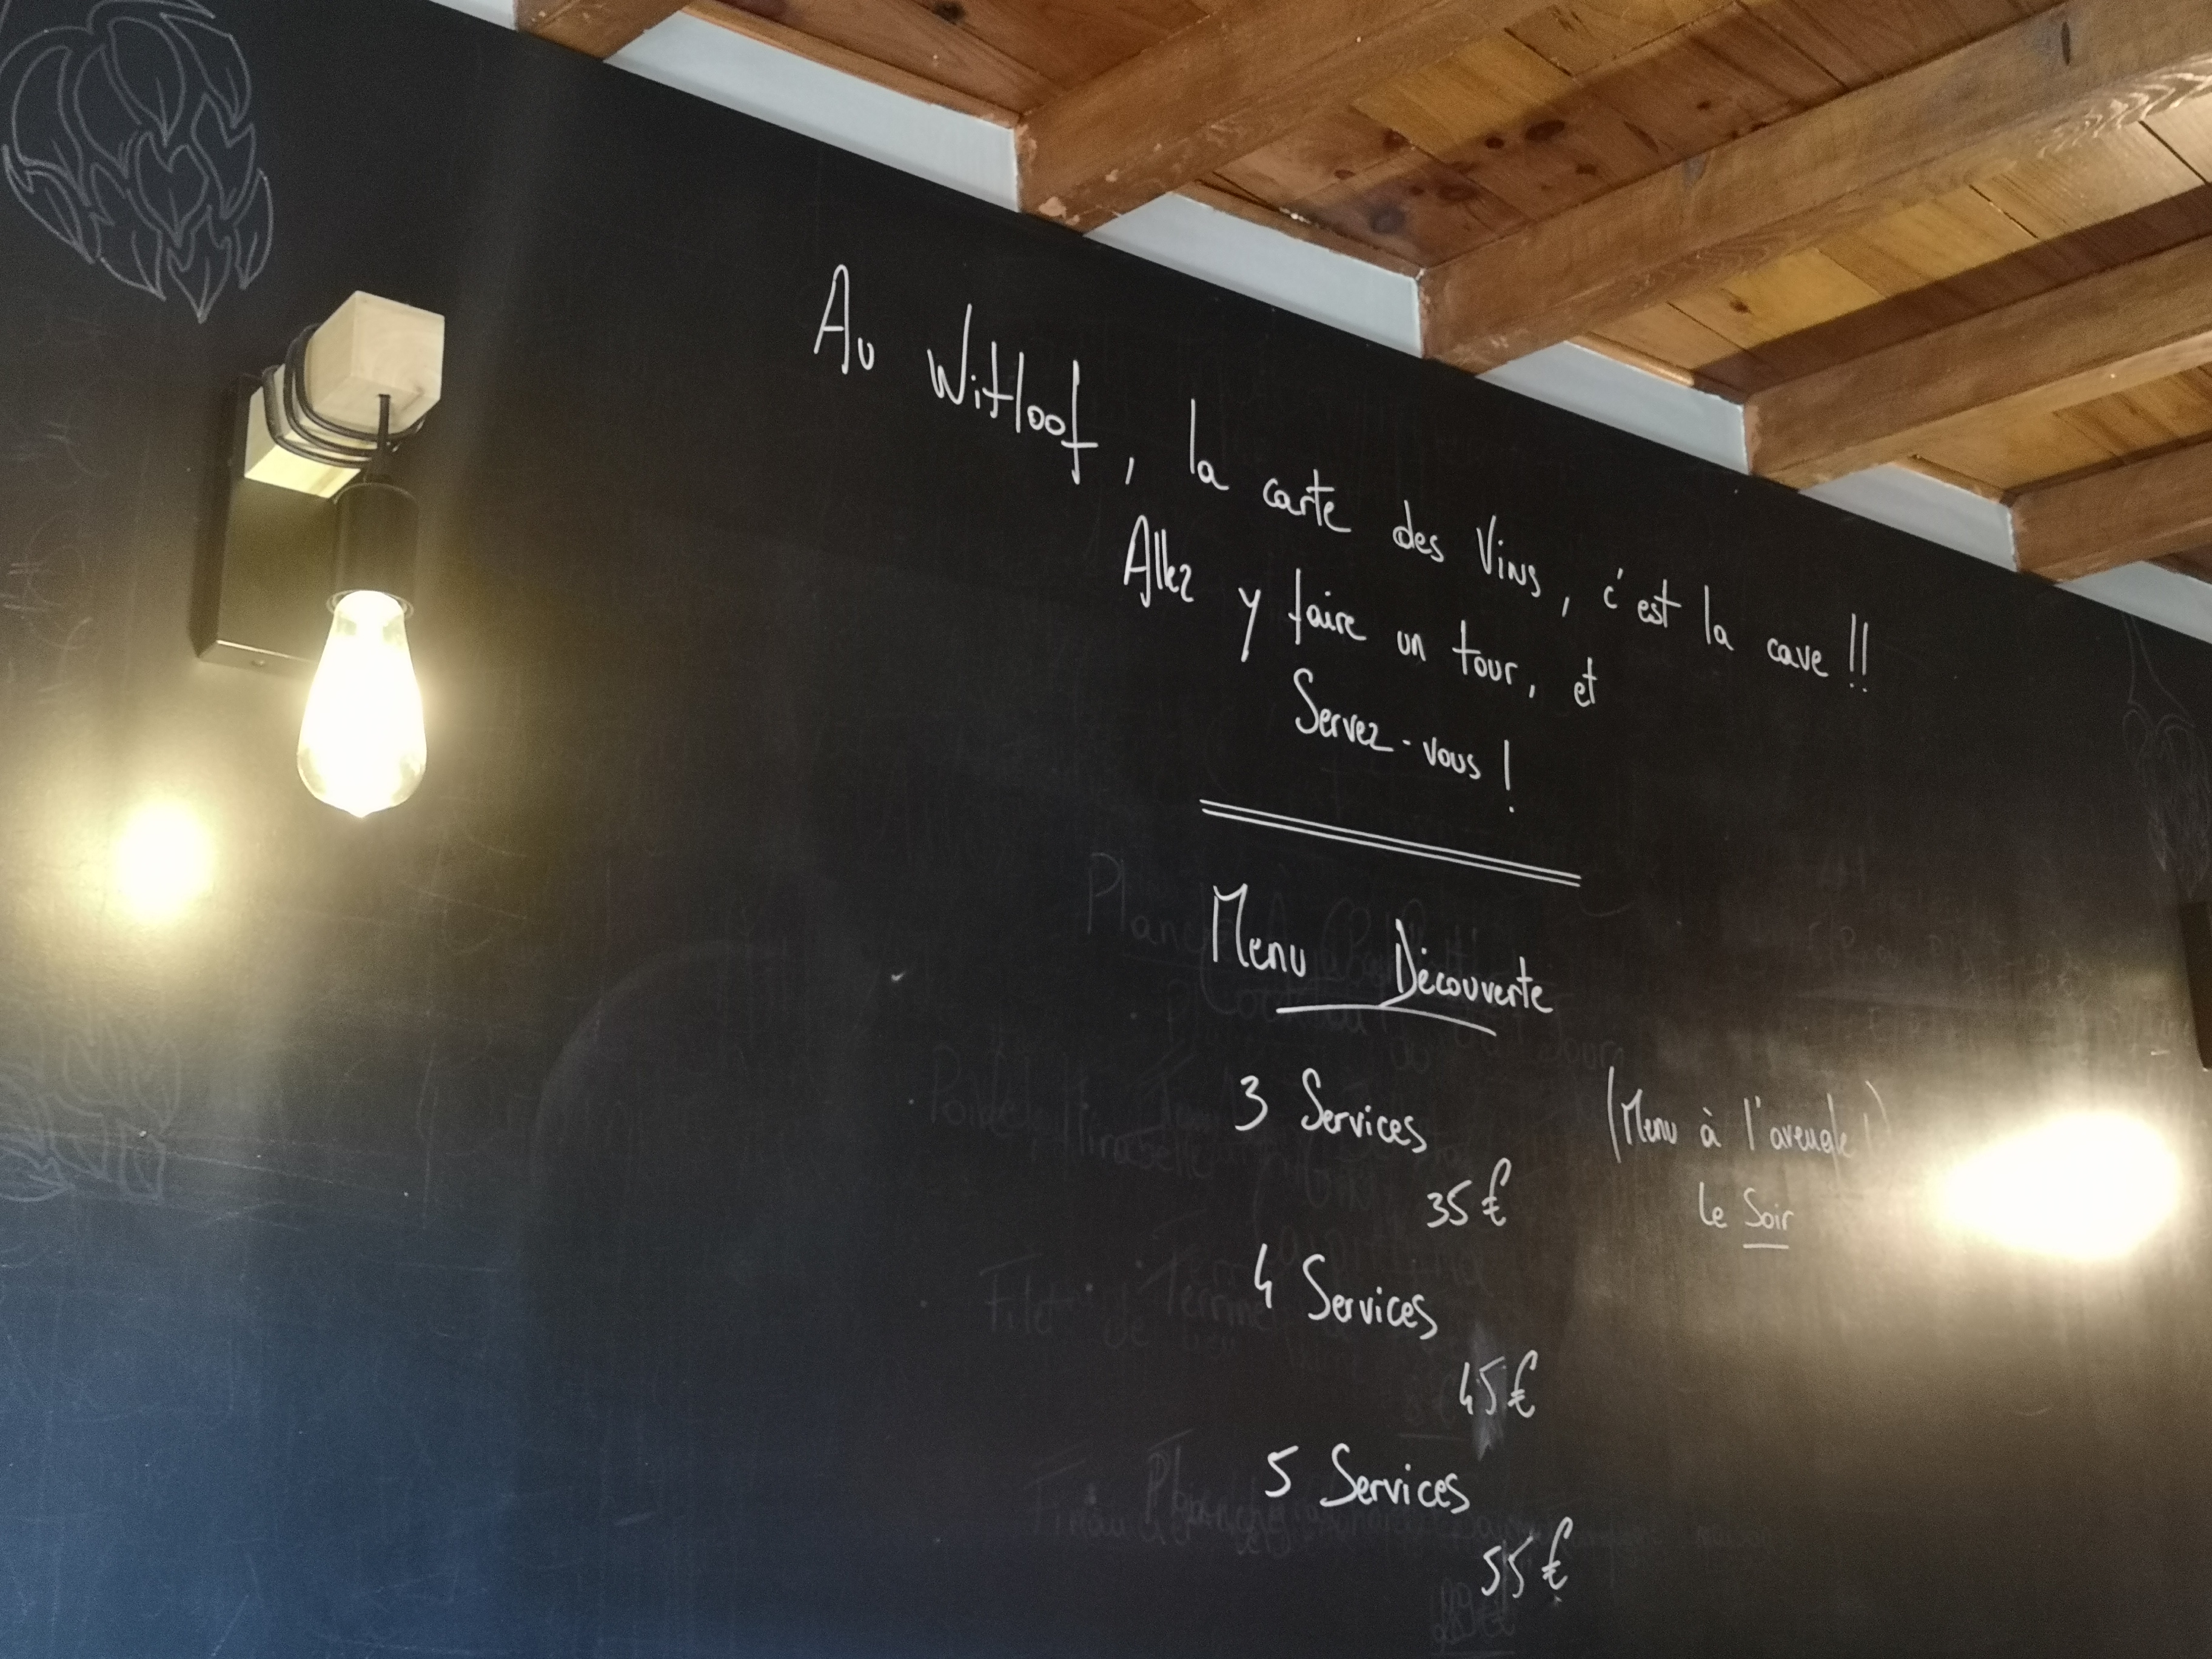 Au Witloof, la carte des Vins, c'est la cave !!
Allez y faire un tour, et
Servez-vous !
Menu Découverte
3 Services
(Menu à l'aveugle !)
35 €
le Soir
4 Services
45 €
5 Services
55 €